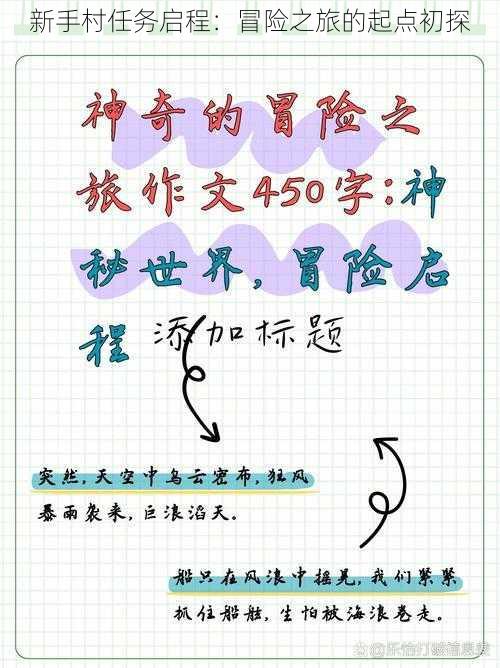 新手村任务启程：冒险之旅的起点初探
神奇的冒险之
旅作文450字:神
秘世界,冒险启
程 添加标题
突然,天空中乌云密布,狂风
暴雨袭来,巨浪滔天。
船只在风浪中摇晃,我们紧紧
抓住船舷,生怕被海浪卷走。